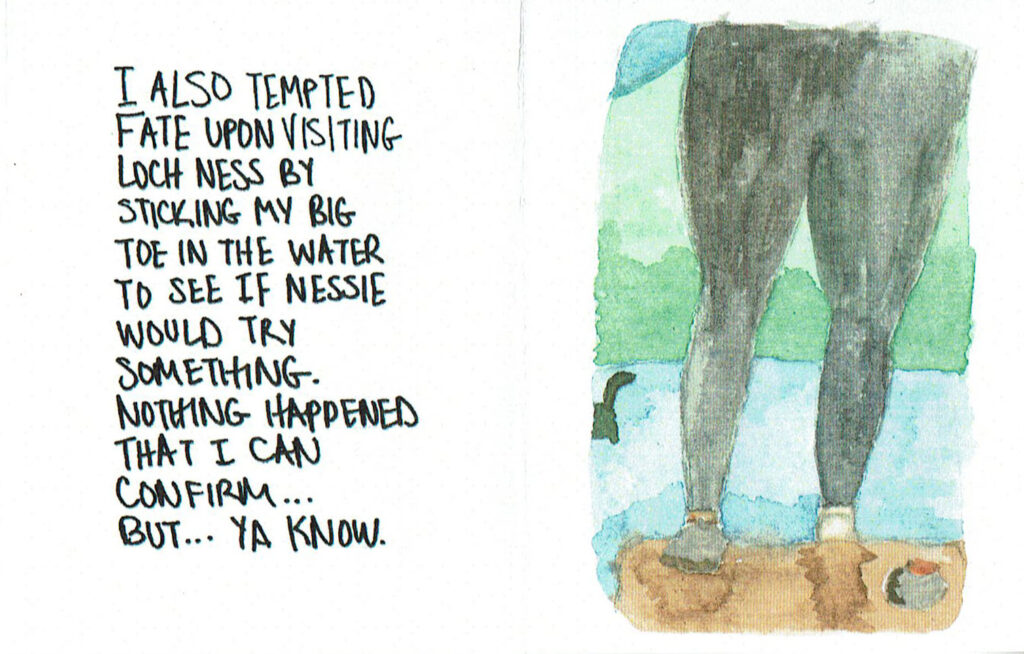 I ALSO TEMPTED
FATE UPON VISITING
LOCH NESS BY
STICKING MY BIG
TOE IN THE WATER
TO SEE IF NESSIE
WOULD TRY
SOMETHING.
NOTHING HAPPENED
THAT I CAN
CONFIRM...
BUT... YA KNOW.